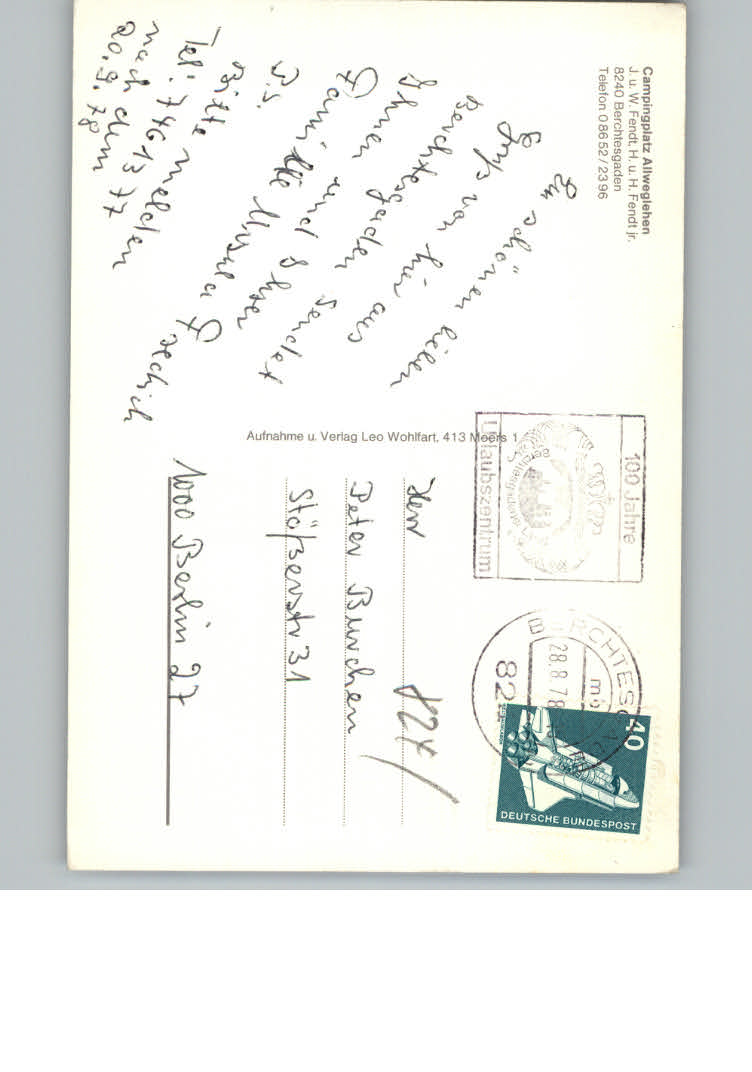 Campingplatz Allweglehen
J. u. W. Fendt, H. u. H. Fendt jr.
8240 Berchtesgaden
Telefon 08652/2396
schönen lieben
Gruß von hier aus
Berchtesgaden sendet
Ihnen und Ihrer
Familie Ursula
P.S
Bitte melden
Tel: 7461377
nach dem
20.9.78
Aufnahme u. Verlag Leo Wohlfart, 413 Moers 1
100 Jahre
Berchtesgadener
Urlaubszentrum
BERCHTESG
28.8.78
824
40
DEUTSCHE BUNDESPOST
824/
Herr
Peter Burchen
Stößerstr 31
1000 Berlin 27